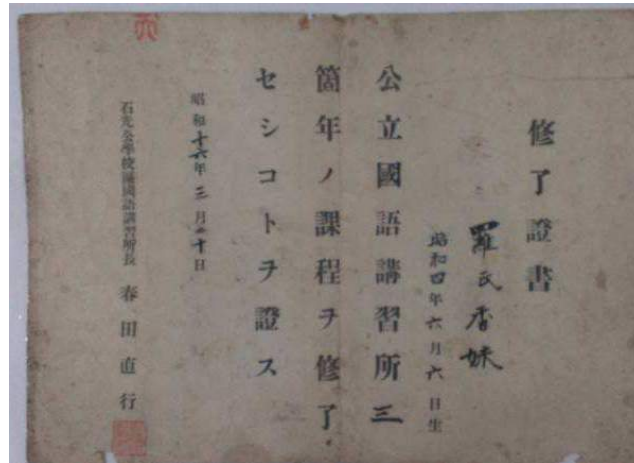 修了證書
羅氏香妹
昭和四年六月六日生
公立國語講習所三
箇年ノ課程ヲ修了
セシコトヲ證ス
昭和十六年三月二十日
石光公學校區國語講習所長 春田直行